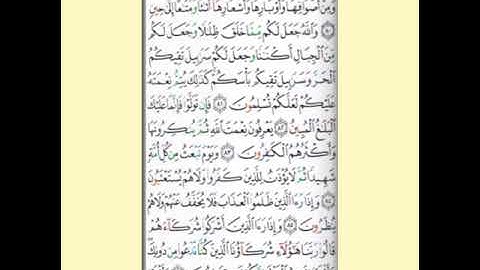 وَمِنْ أَصْوَافِهَا وَأَوْبَارِهَا وَأَشْعَارِهَا أَثَاثًا وَمَتَاعًا إِلَىٰ حِينٍ
٨٠ وَاللَّهُ جَعَلَ لَكُم مِّمَّا خَلَقَ ظِلَالًا وَجَعَلَ لَكُم
مِّنَ الْجِبَالِ أَكْنَانًا وَجَعَلَ لَكُمْ سَرَابِيلَ تَقِيكُمُ
الْحَرَّ وَسَرَابِيلَ تَقِيكُم بَأْسَكُمْ كَذَٰلِكَ يُتِمُّ نِعْمَتَهُ
عَلَيْكُمْ لَعَلَّكُمْ تُسْلِمُونَ ٨١ فَإِن تَوَلَّوْا فَإِنَّمَا عَلَيْكَ
الْبَلَاغُ الْمُبِينُ ٨٢ يَعْرِفُونَ نِعْمَتَ اللَّهِ ثُمَّ يُنكِرُونَهَا
وَأَكْثَرُهُمُ الْكَافِرُونَ ٨٣ وَيَوْمَ نَبْعَثُ مِن كُلِّ أُمَّةٍ
شَهِيدًا ثُمَّ لَا يُؤْذَنُ لِلَّذِينَ كَفَرُوا وَلَا هُمْ يُسْتَعْتَبُونَ
٨٤ وَإِذَا رَأَى الَّذِينَ ظَلَمُوا الْعَذَابَ فَلَا يُخَفَّفُ عَنْهُمْ وَلَا هُمْ
يُنظَرُونَ ٨٥ وَإِذَا رَأَى الَّذِينَ أَشْرَكُوا شُرَكَاءَهُمْ
قَالُوا رَبَّنَا هَٰؤُلَاءِ شُرَكَاؤُنَا الَّذِينَ كُنَّا نَدْعُوا مِن دُونِكَ